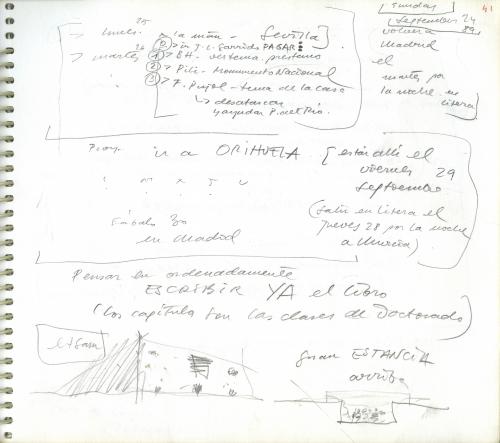 41
25
> lunes. > la mañ - Sevilla
26
> martes ⓪ > in J.L. Garrido PAGAR
① > BH - ver tema préstamo
② > Pili - Monumento Nacional
③ > F. Pujol - tema de la casa
↳ desatascar
y ayudar P. del Río.
Septiembre 24
89
volver a
Madrid
el
martes por
la noche en
litera
ir a ORIHUELA. [estar allí el
viernes 29
septiembre
L M X J V
(salir en litera el
jueves 28 por la noche
a Murcia)
sábado 30
en Madrid
Pensar en ordenadamente
ESCRIBIR YA el libro
(los capítulos son las clases de Doctorado)
gran ESTANCIA
arriba